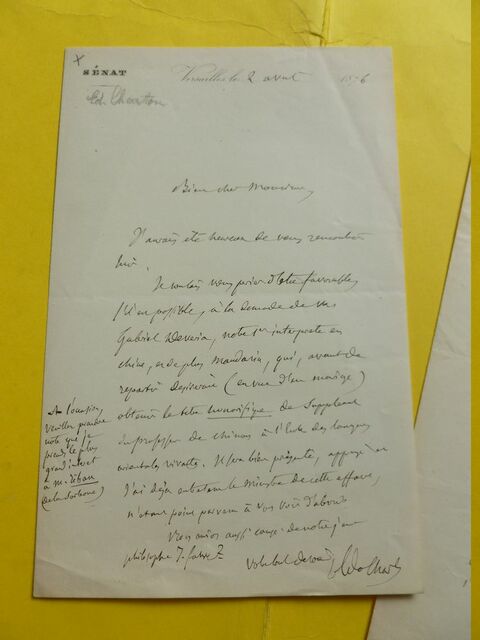 SÉNAT
Versailles, le 2 avril 1876
Ed. Charton
Bien cher Monsieur,
J'aurais été heureux de vous rencontrer
hier.
Je voulais vous prier d'être favorable,
s'il est possible, à la demande de
Gabriel Deveria, notre 1er interprète en
chine, et de plus mandarin, qui, avant de
repartir désirerait (en vue d'un mariage)
obtenir le titre honorifique de suppléant
du professeur de chinois à l'École des langues
orientales vivantes. Il sera bien présenté, appuyé
J'ai déjà entretenu le Ministre de cette affaire,
n'étant point parvenu à vous voir d'abord.
aussi causé de notre jeune
philosophe J.
Votre tout dévoué Ed. Charton
A l'occasion,
veuillez prendre
note que je
prends le plus
grand intérêt
à M.
(de la Sorbonne)